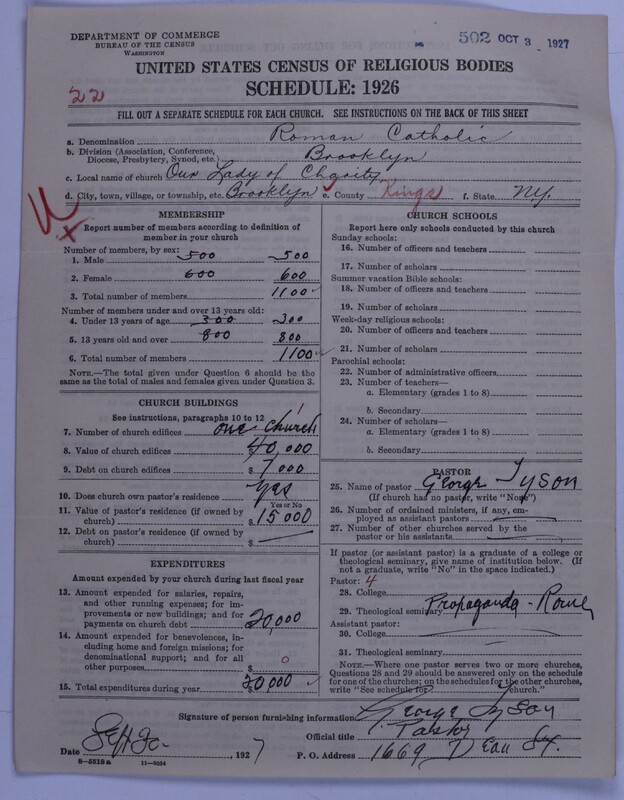 DEPARTMENT OF COMMERCE
BUREAU OF THE CENSUS
WASHINGTON
502 OCT 3 1927
UNITED STATES CENSUS OF RELIGIOUS BODIES
SCHEDULE: 1926
22
FILL OUT A SEPARATE SCHEDULE FOR EACH CHURCH. SEE INSTRUCTIONS ON THE BACK OF THIS SHEET
a. Denomination Roman Catholic
b. Division (Association, Conference, Diocese, Presbytery, Synod, etc.) Brooklyn
c. Local name of church Our Lady of Charity
d. City, town, village, or township, etc. Brooklyn e. County Kings f. State N.Y.
MEMBERSHIP
Report number of members according to definition of
member in your church
Number of members, by sex:
1. Male 500 500
2. Female 600 600
3. Total number of members 1100
Number of members under and over 13 years old:
4. Under 13 years of age 300 300
5. 13 years old and over 800 800
6. Total number of members 1100
NOTE.—The total given under Question 6 should be the
same as the total of males and females given under Question 3.
CHURCH BUILDINGS
See instructions, paragraphs 10 to 12
7. Number of church edifices one church
8. Value of church edifices $40,000
9. Debt on church edifices $7000
10. Does church own pastor's residence yes
Yes or No
11. Value of pastor's residence (if owned by
church) $15000
12. Debt on pastor's residence (if owned by
church) $
EXPENDITURES
Amount expended by your church during last fiscal year
13. Amount expended for salaries, repairs,
and other running expenses; for im-
provements or new buildings; and for
payments on church debt $20,000
14. Amount expended for benevolences, in-
cluding home and foreign missions; for
denominational support; and for all
other purposes $ 0
15. Total expenditures during year $20000
CHURCH SCHOOLS
Report here only schools conducted by this church
Sunday schools:
16. Number of officers and teachers
17. Number of scholars
Summer vacation Bible schools:
18. Number of officers and teachers
19. Number of scholars
Week-day religious schools:
20. Number of officers and teachers
21. Number of scholars
Parochial schools:
22. Number of administrative officers
23. Number of teachers—
a. Elementary (grades 1 to 8)
b. Secondary
24. Number of scholars—
a. Elementary (grades 1 to 8)
b. Secondary
PASTOR
25. Name of pastor George Tyson
(If church has no pastor, write "None")
26. Number of ordained ministers, if any, em-
ployed as assistant pastors
27. Number of other churches served by the
pastor or his assistants
If pastor (or assistant pastor) is a graduate of a college or
theological seminary, give name of institution below. (If
not a graduate, write "No" in the space indicated.)
Pastor: 4
28. College
29. Theological seminary Propaganda - Rome
Assistant pastor:
30. College
31. Theological seminary
NOTE.—Where one pastor serves two or more churches,
Questions 28 and 29 should be answered only on the schedule
for one of the churches; on the schedules for the other churches,
write "See schedule for church."
Signature of person furnishing information George Tyson
Official title Pastor
Date Sept 30. , 1927 P. O. Address 1669 Dean St.
8-5518 a 11-9034